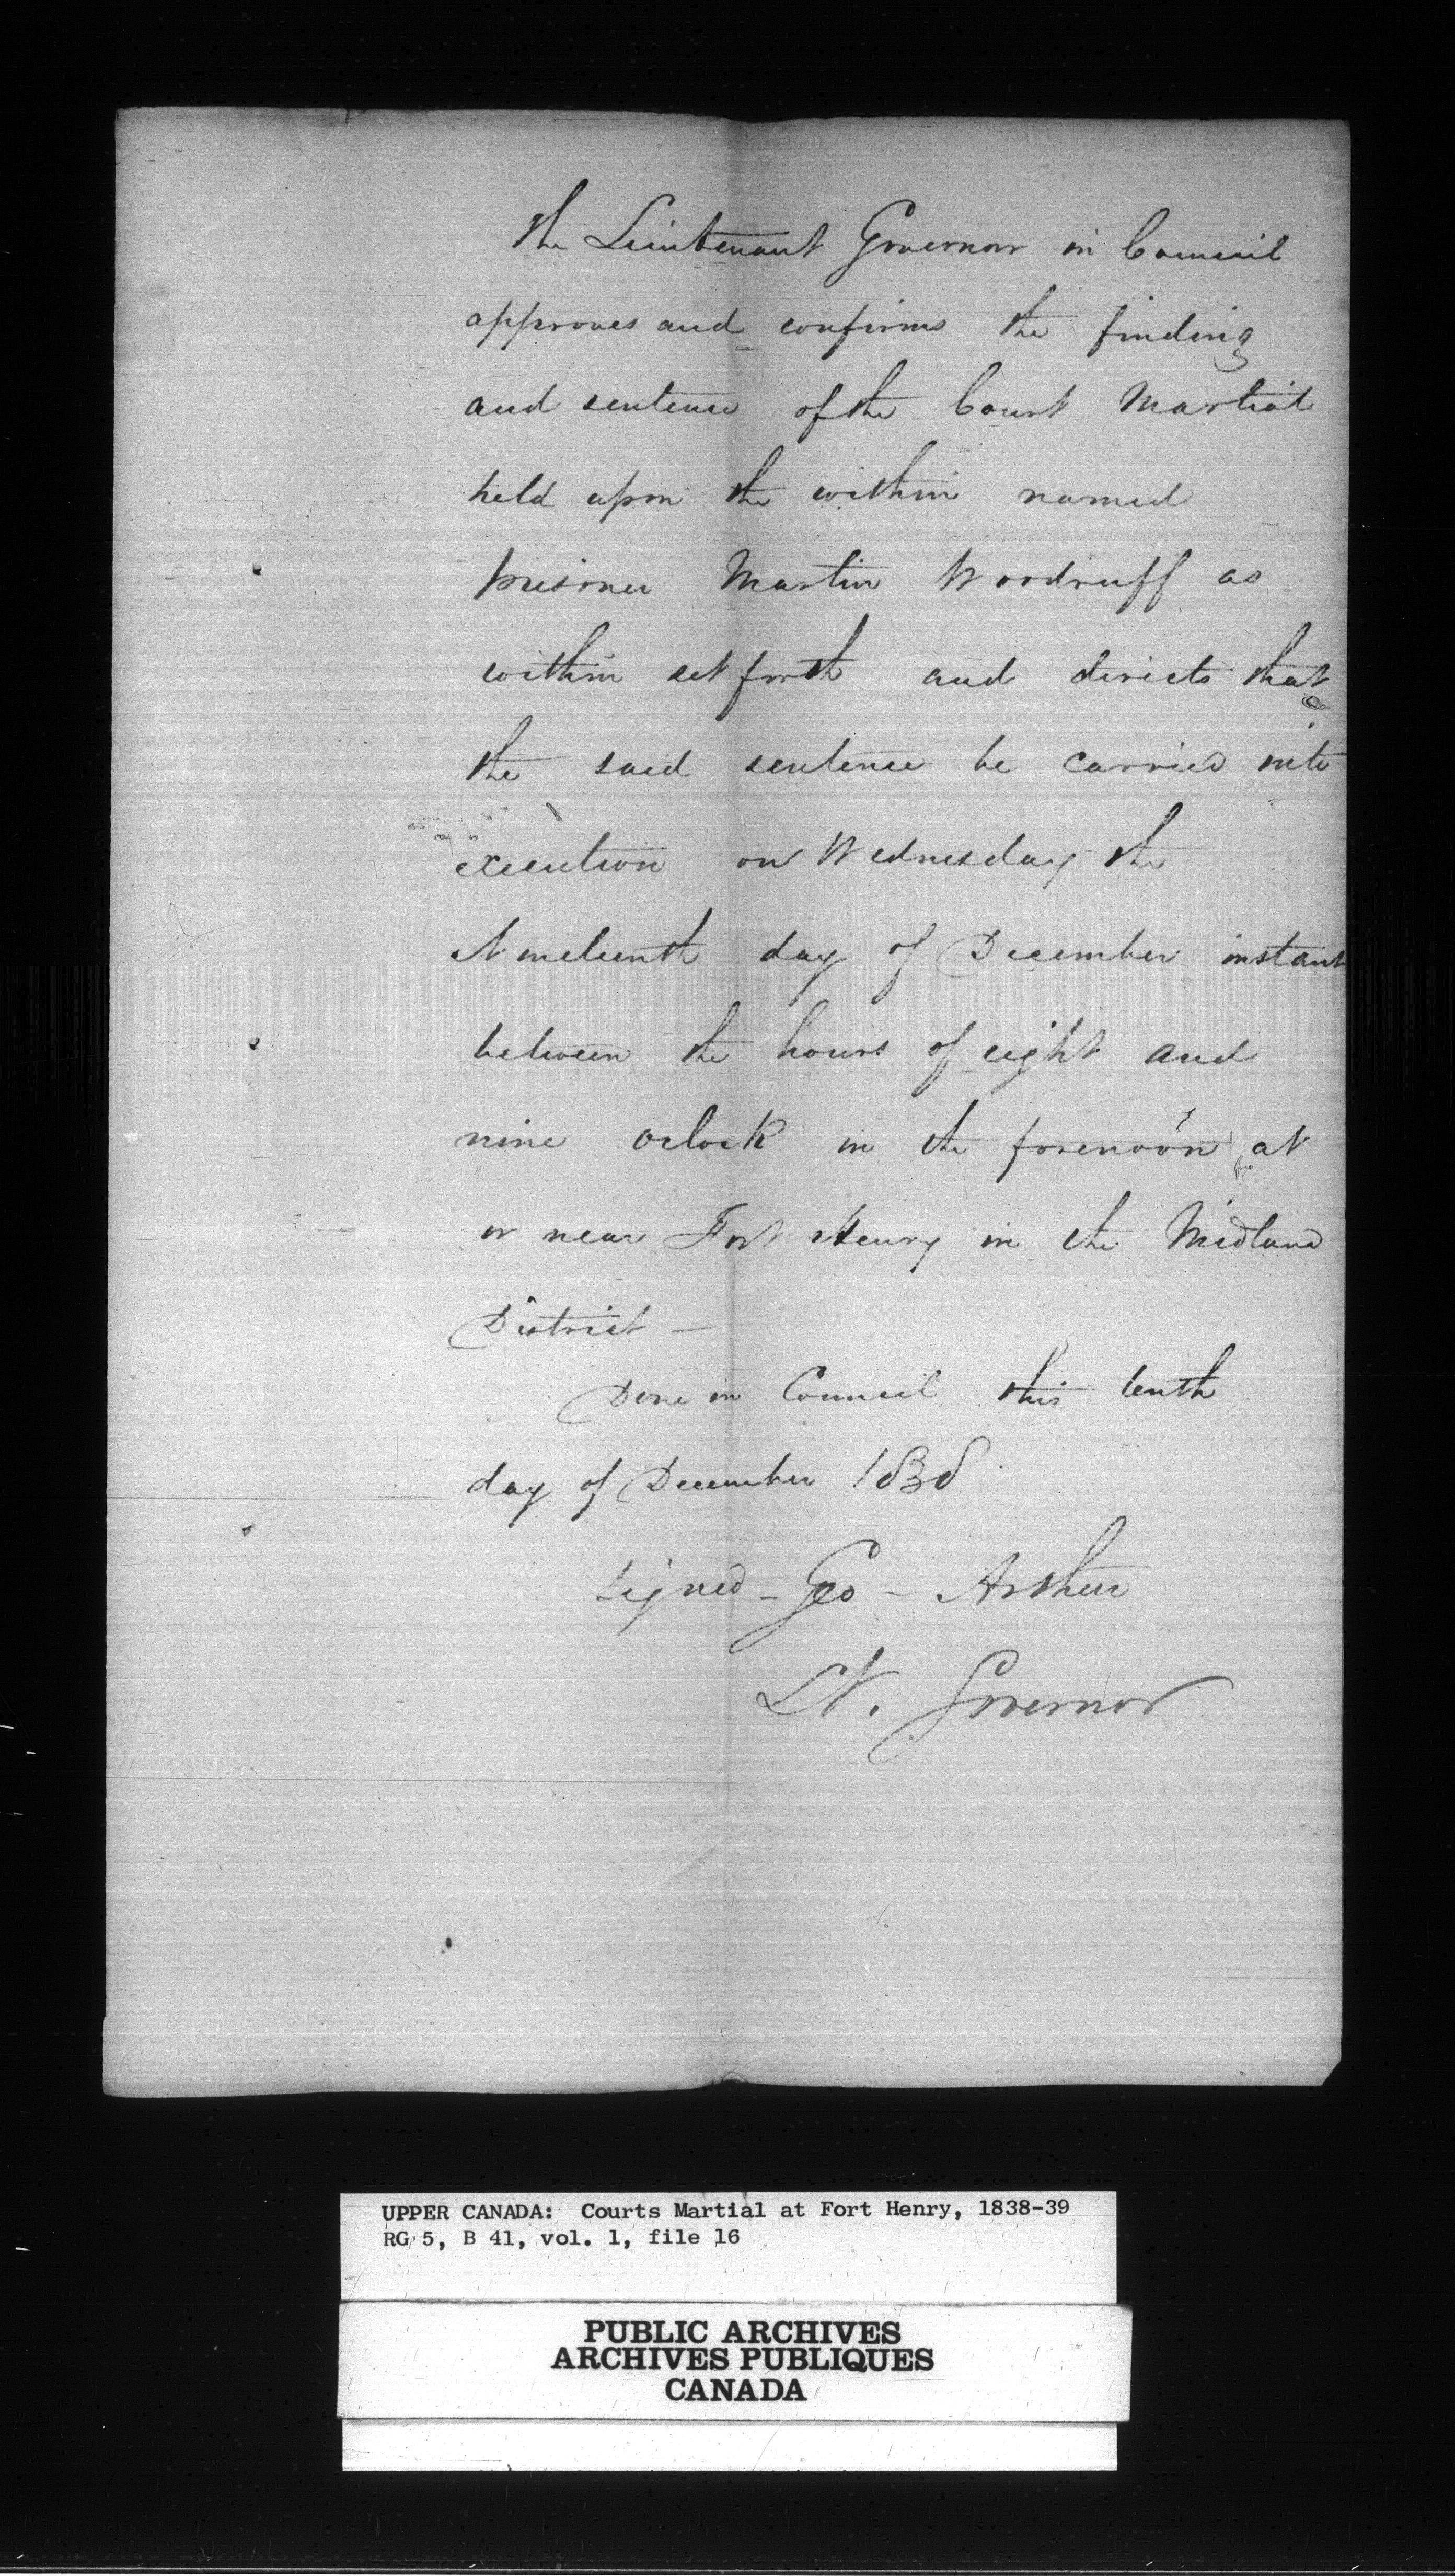 The Lieutenant Governor in Council
approves and confirms the finding
and sentence of the Court Martial
held upon the within named
prisoner Martin Woodruff as
within set forth and directs that
the said sentence be carried into
execution on Wednesday the
Nineteenth day of December instant
between the hours of eight and
nine oclock in the forenoon at
or near Fort Henry in the Midland
District —
Done in Council this tenth
day of December 1838.
Signed - Geo - Arthur
Lt. Governor
UPPER CANADA: Courts Martial at Fort Henry, 1838-39
RG 5, B 41, vol. 1, file 16
PUBLIC ARCHIVES
ARCHIVES PUBLIQUES
CANADA